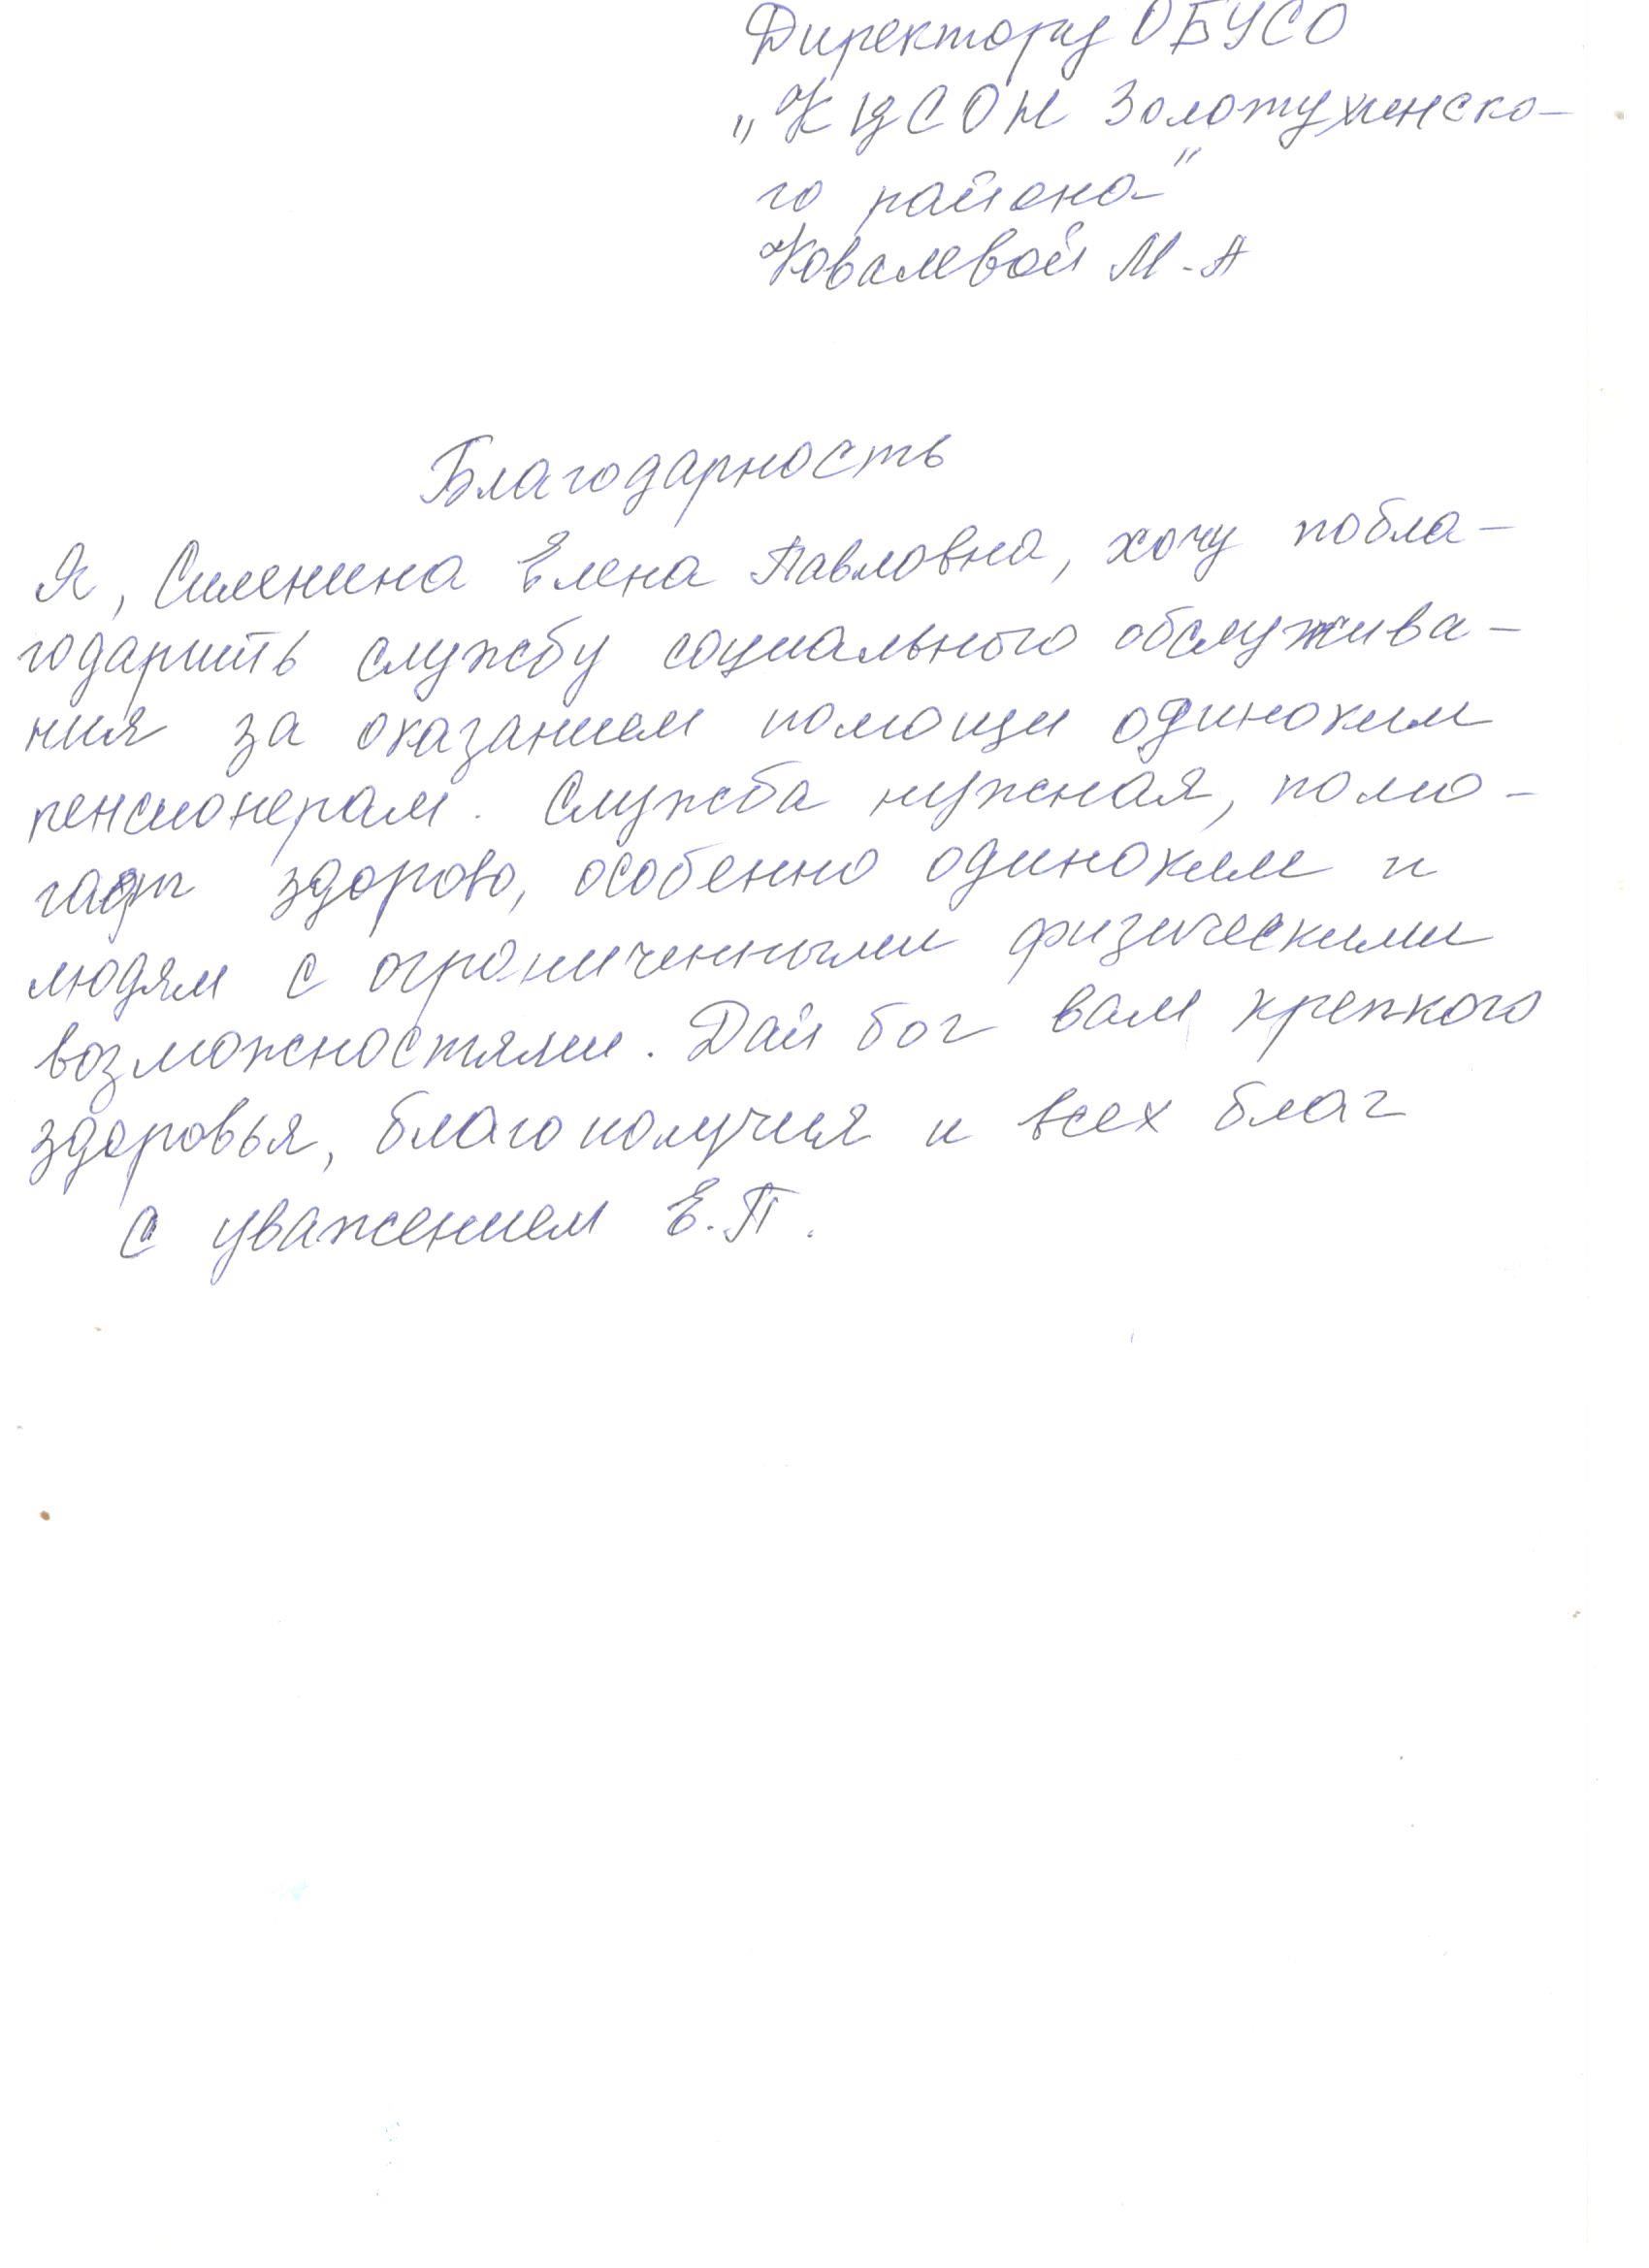 Директору ОБУСО
„КЦСОН Золотухинско-
го района"
Ковалевой М.А
Благодарность
Я, Силенина Елена Павловна, хочу побла-
годарить службу социального обслужива-
ния за оказанием помощи одиноким
пенсионерам. Служба нужная, помо-
гает здорово, особенно одиноким и
людям с ограниченными физическими
возможностями. Дай бог вам крепкого
здоровья, благополучия и всех благ
С уважением Е.П.